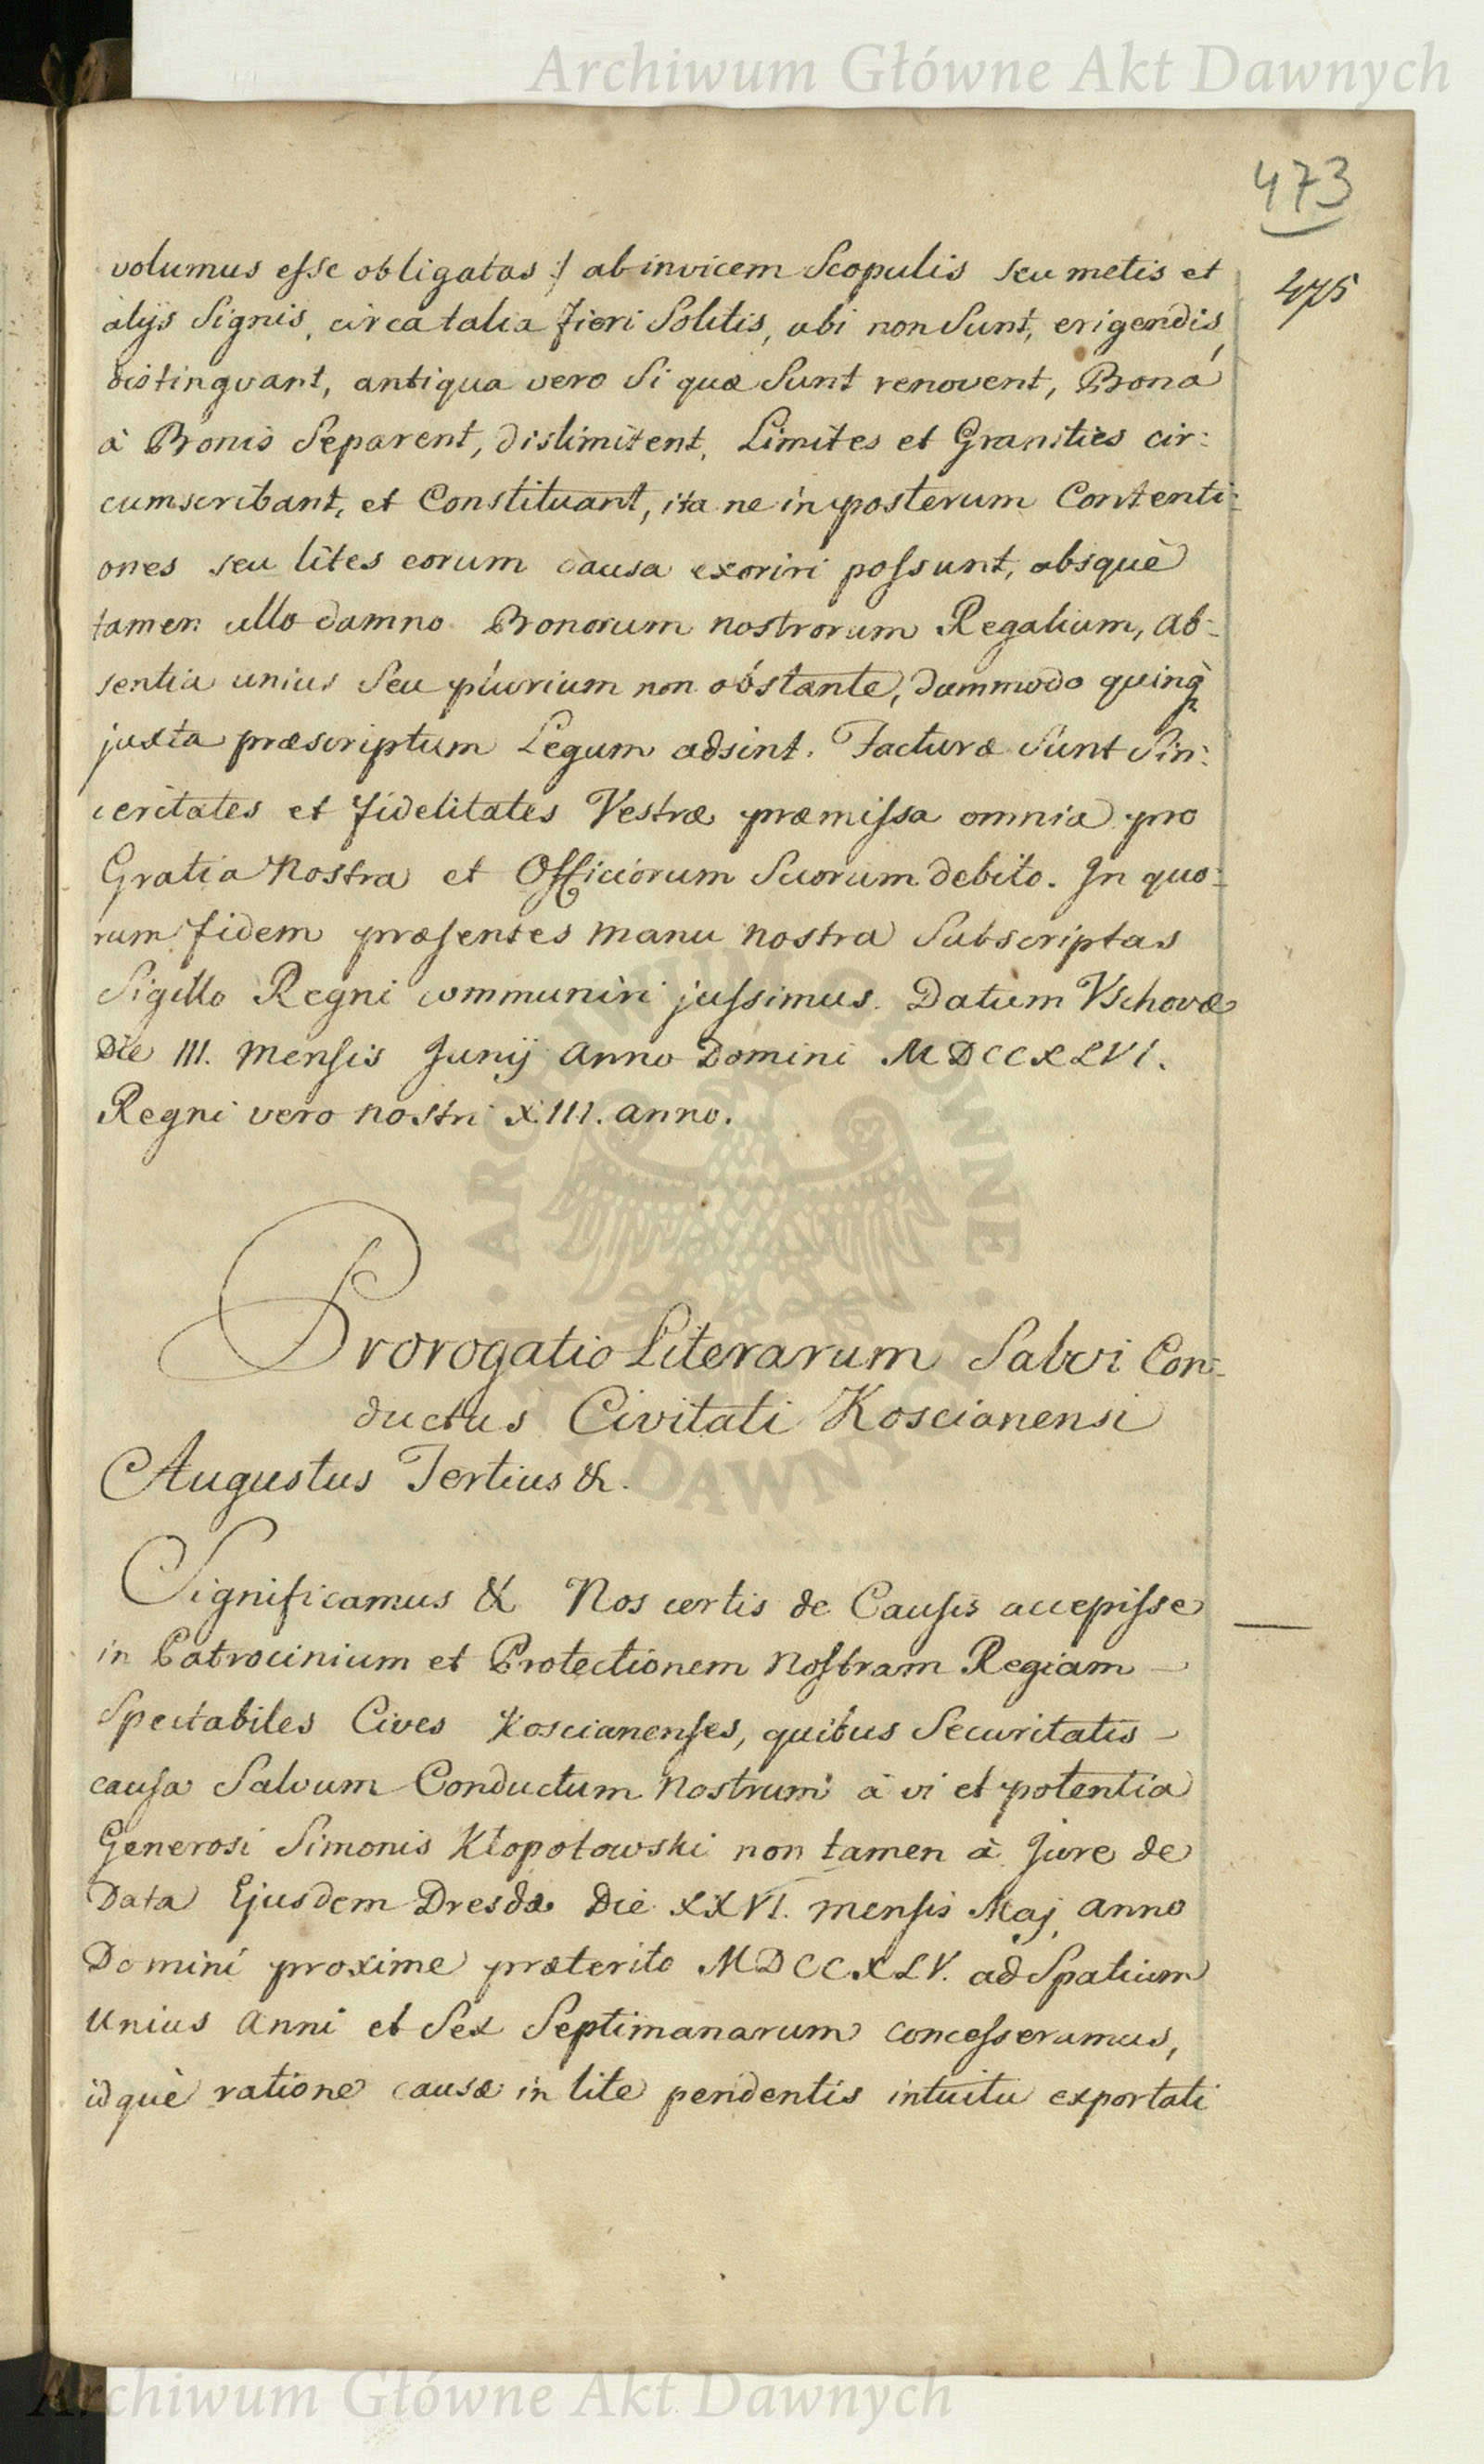 Archiwum Główne Akt Dawnych
473
475
volumus esse obligatas :/ ab invicem Scopulis seu metis et
alijs Signis, circa talia fieri Solitis, ubi non Sunt, erigendis,
distingvant, antiqua vero Si quæ Sunt renovent, Bona
à Bonis Separent, dislimitent, Limites et Granities cir:
cumscribant, et Constituant, ita ne in posterum Contenti:
ones seu lites eorum causa exoriri possunt, absquè
tamen ullo damno Bonorum nostrorum Regalium, Ab:
sentia unius Seu plurium non obstante, dummodo quinq̀
juxta præscriptum Legum adsint. Facturæ Sunt Sin:
ceritates et fidelitates Vestræ præmissa omnia pro
Gratia Nostra et Officiorum Suorum debito. In quo:
rum fidem præsentes manu nostra Subscriptas
Sigillo Regni communiri jussimus. Datum Vschovæ
Die III. Mensis Junij Anno Domini MDCCXLVI.
Regni vero nostri XIII. anno.
Prorogatio Literarum Salvi Con:
ductus Civitati Koscianensi
Augustus Tertius &.
Significamus & Nos certis de Causis accepisse
in Patrocinium et Protectionem Nostram Regiam
Spectabiles Cives Koscianenses, quibus Securitatis
causa Salvum Conductum Nostrum à vi et potentia
Generosi Simonis Kłopotowski non tamen à Jure de
Data Ejusdem Dresdæ Die XXVI. mensis Maj Anno
Domini proxime præterito MDCCXLV. ad Spatium
Unius Anni et Sex Septimanarum concesseramus,
idquè ratione causæ in lite pendentis intuitu exportati
ARCHIWUM GŁÓWNE AKT DAWNYCH
Archiwum Główne Akt Dawnych